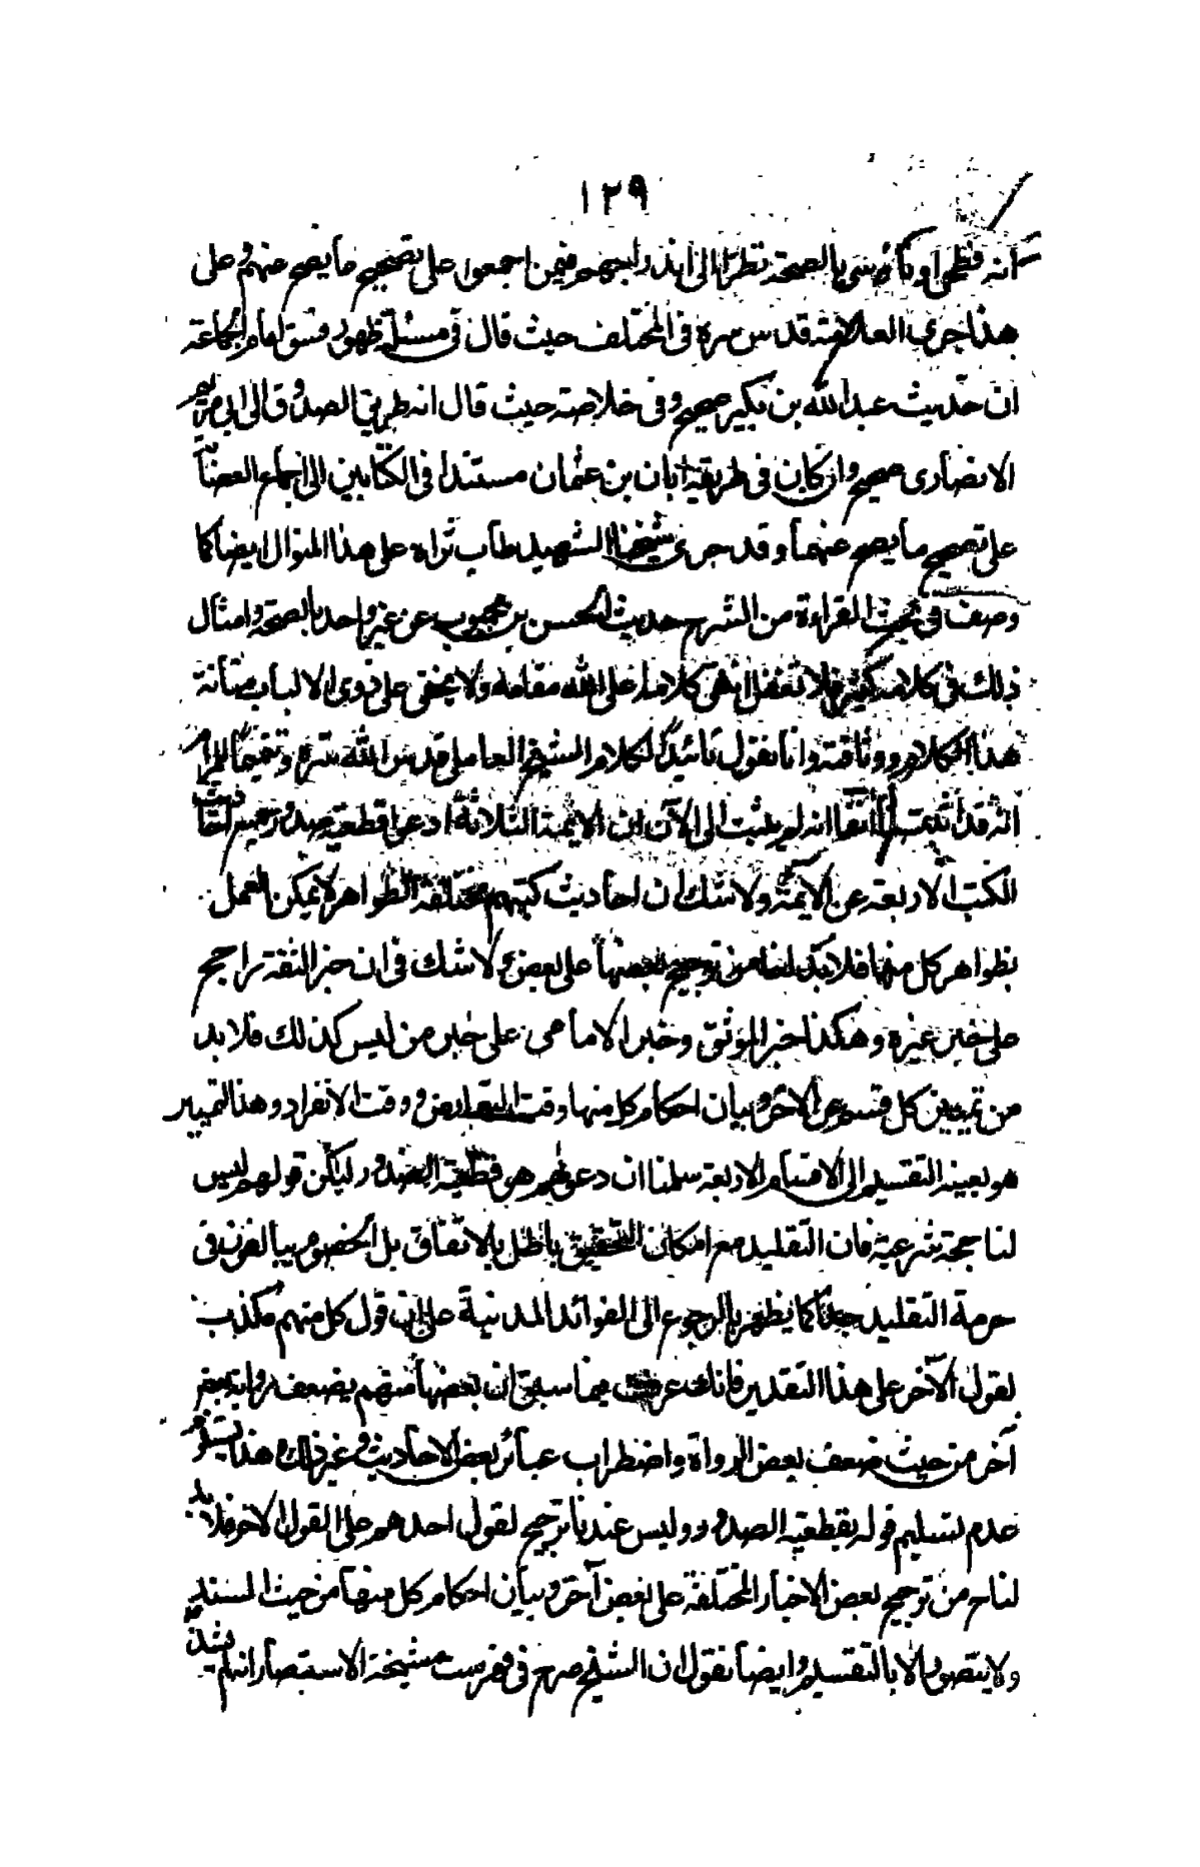 ١٢٩
انه فطحى او ناؤسى بالصحة نظرا الى اندراجهم فيمن اجمعوا على تصحيح ما يصح عنهم وعلى
هذا جرى العلامة قدس سره فى المختلف حيث قال فى مسئلة ظهور فسق امام الجماعة
ان حديث عبد الله بن بكير صحيح وفى خلاصته حيث قال انه طريق الصدوق الى ابى مريم
الانصارى صحيح وان كان فى طريقه ابان بن عثمان مستندا فى الكتابين الى اجماع العصابة
على تصحيح ما يصح عنهما وقد جرى شيخنا الشهيد طاب ثراه على هذا المنوال ايضا كما
وصف فى بحث القراءة من الشرح حديث الحسن بن محبوب عن غير واحد بالصحة وامثال
ذلك فى كلامه كثير فلا تغفل انتهى كلامه اعلى الله مقامه ولا يخفى على ذوى الالباب متانة
هذا الكلام ووثاقته وانا نقول تائيدا لكلام الشيخ العاملى قدس الله سره وتتميما للمرام
انه قد اثبتنا آنفا انه لم يثبت الى الآن ان الائمة الثلاثة ادعوا قطعية صدور جميع احاديث
الكتب الاربعة عن الائمة ولا شك ان احاديث كتبهم مختلفة الظواهر لا يمكن العمل
بظواهر كل منها فلا بد لنا من ترجيح بعضها على بعض ولا شك فى ان خبر الثقة راجح
على خبر غيره وهكذا خبر الموثق وخبر الامامى على خبر من ليس كذلك فلا بد
من تميين كل قسم عن الآخر وبيان احكام كل منها وقت التعارض ووقت الانفراد وهذا التميير
هو بعينه التقسيم الى الاقسام الاربعة سلمنا ان دعوىهم هى قطعية الصدور لكن قولهم ليس
لنا حجة شرعية فان التقليد مع امكان التحقيق باطل بالاتفاق بل الخصوم يبالغون فى
حرمة التقليد جدا كما يظهر بالرجوع الى الفوائد المدنية على ان قول كل منهم مكذب
لقول الآخر على هذا التقدير فانك عرفت فيما سبق ان بعضها منهم يضعف رواية بعض
آخر من حيث ضعف بعض الرواة واضطراب عبائر بعض الاحاديث وغير ذلك وهذا يستلزم
عدم تسليم قوله بقطعية الصدور وليس عندنا ترجيح لقول احدهم على القول الآخر فلا بد
لنا ح من ترجيح بعض الاخبار المختلفة على بعض آخر وبيان احكام كل منها من حيث السند
ولا يتصور الا بالتقسيم وايضا نقول ان الشيخ صرح فى فهرست مشيخة الاستبصار انهم